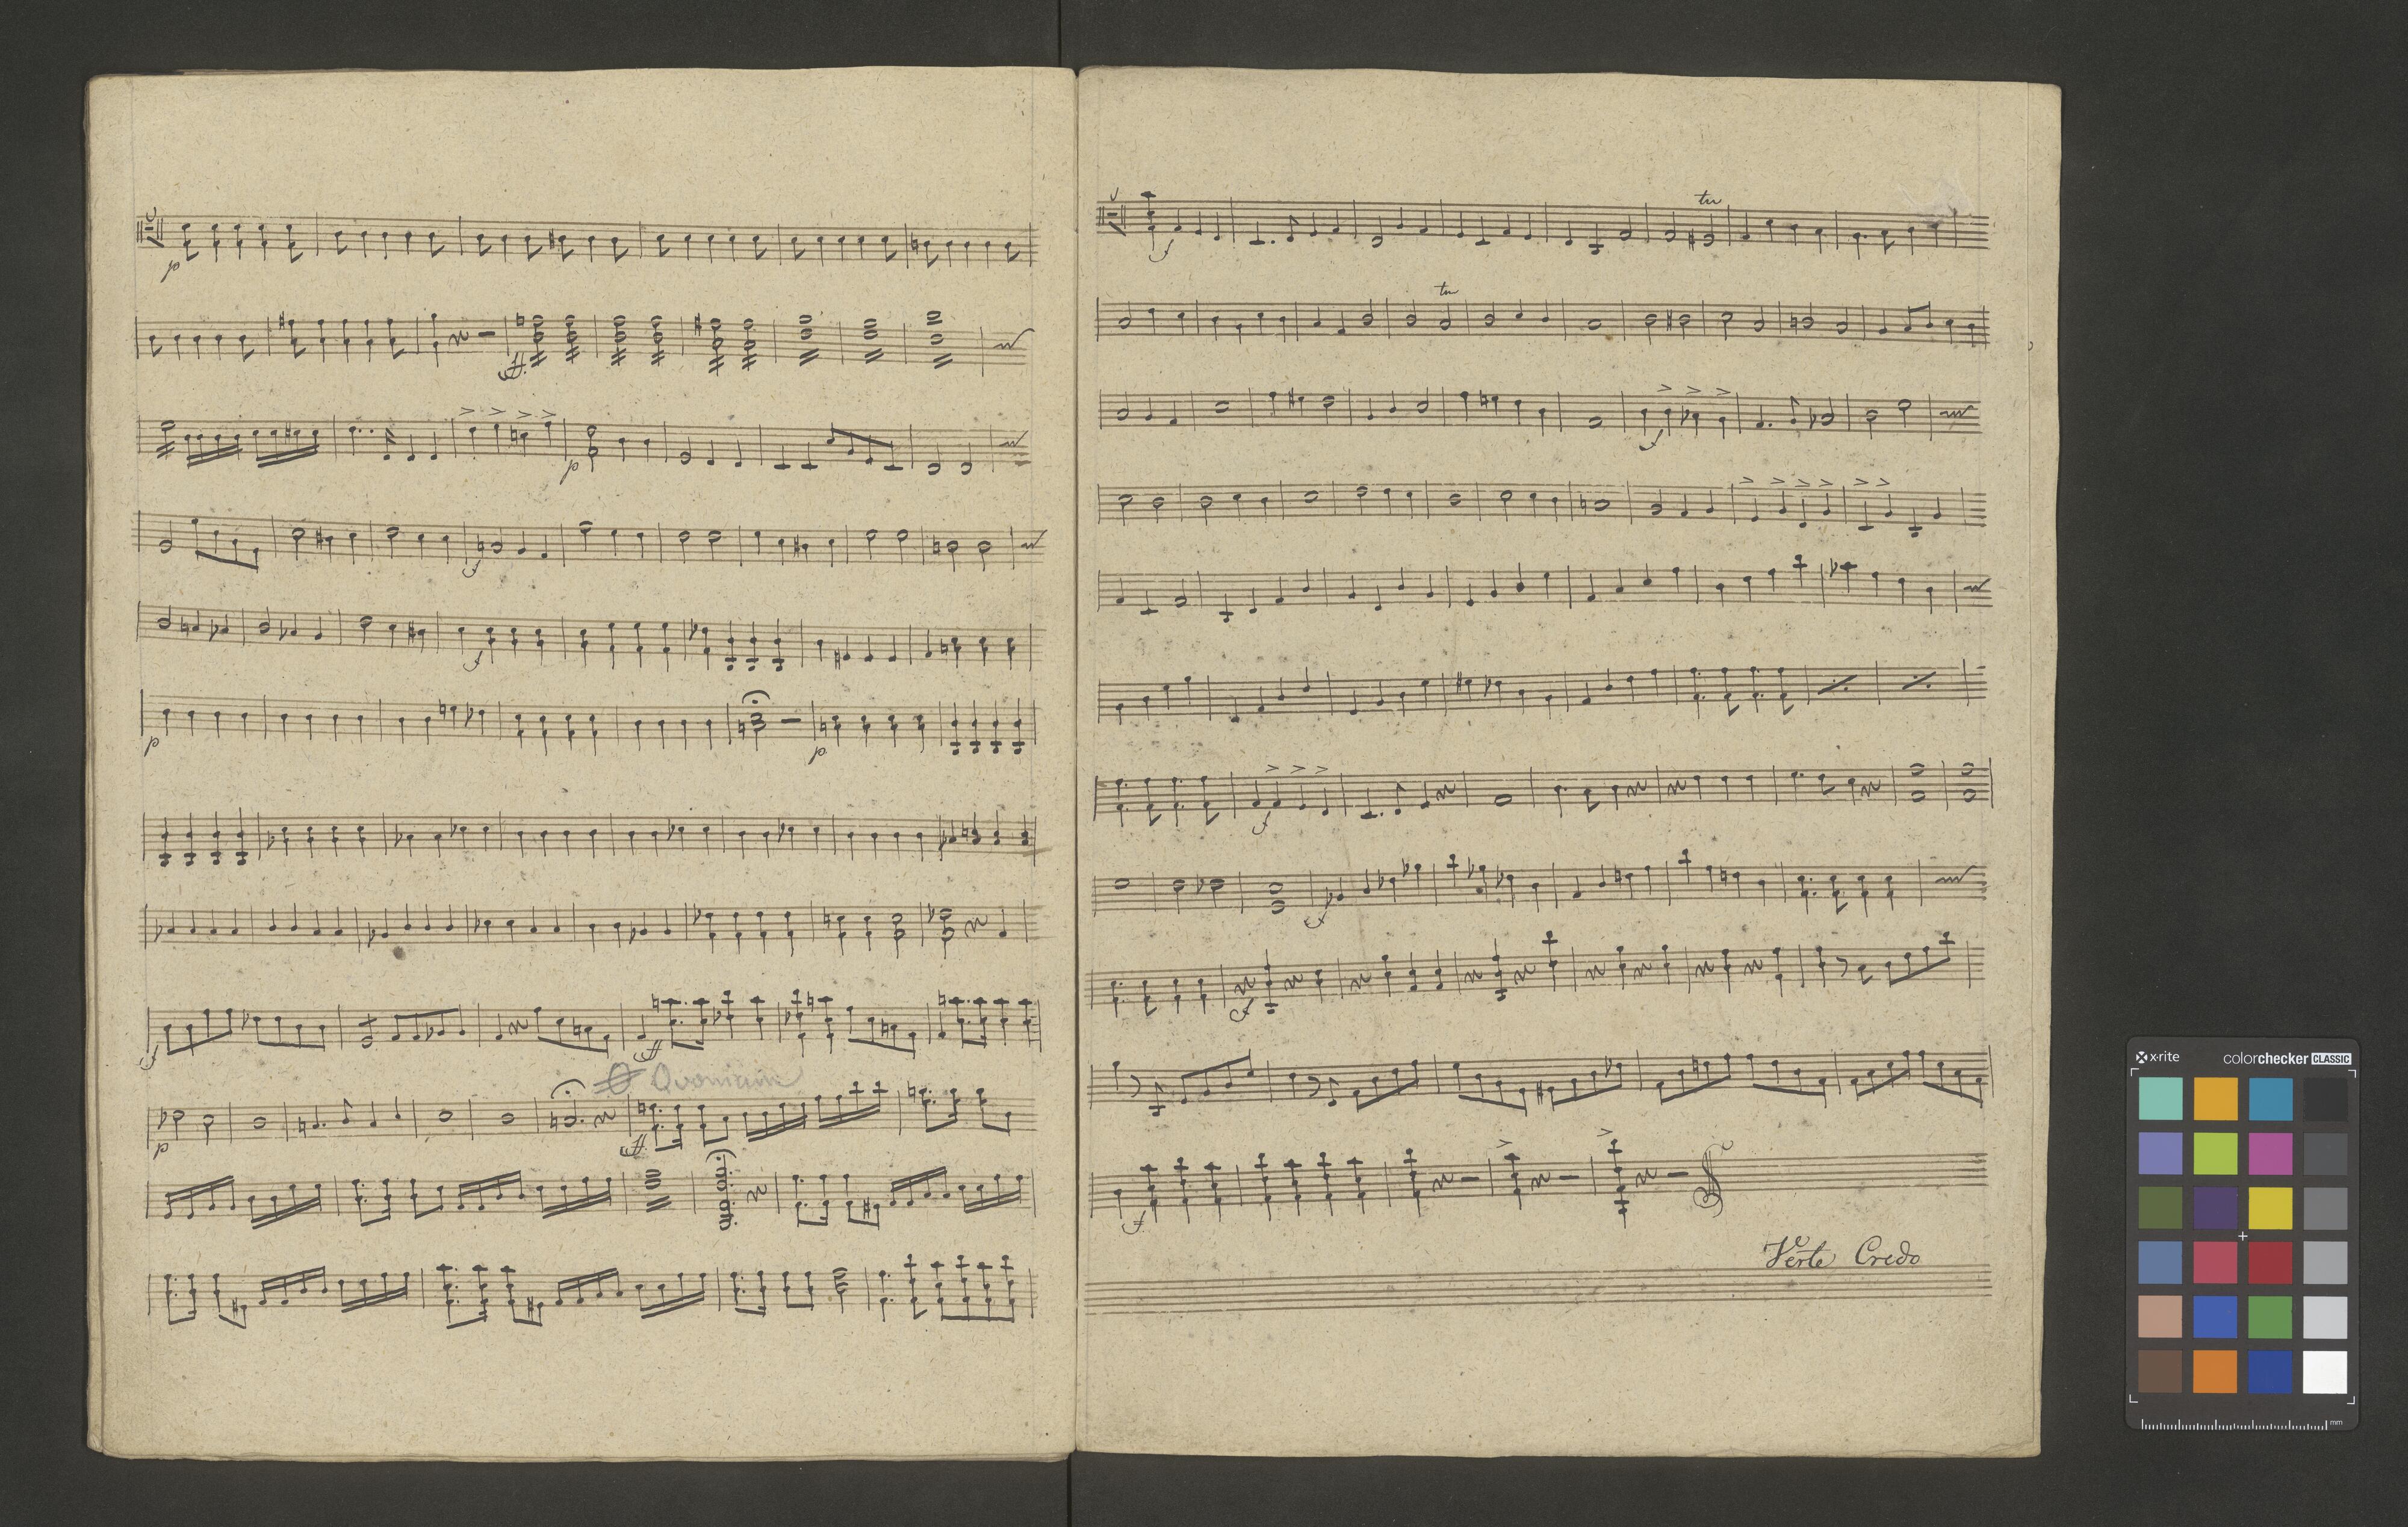 p
tr
f
ff.
tr
p
f
f
f
p
p
f
f
ff
f
Quoniam
p
ff.
f
Verte Credo
x-rite
colorchecker CLASSIC
mm